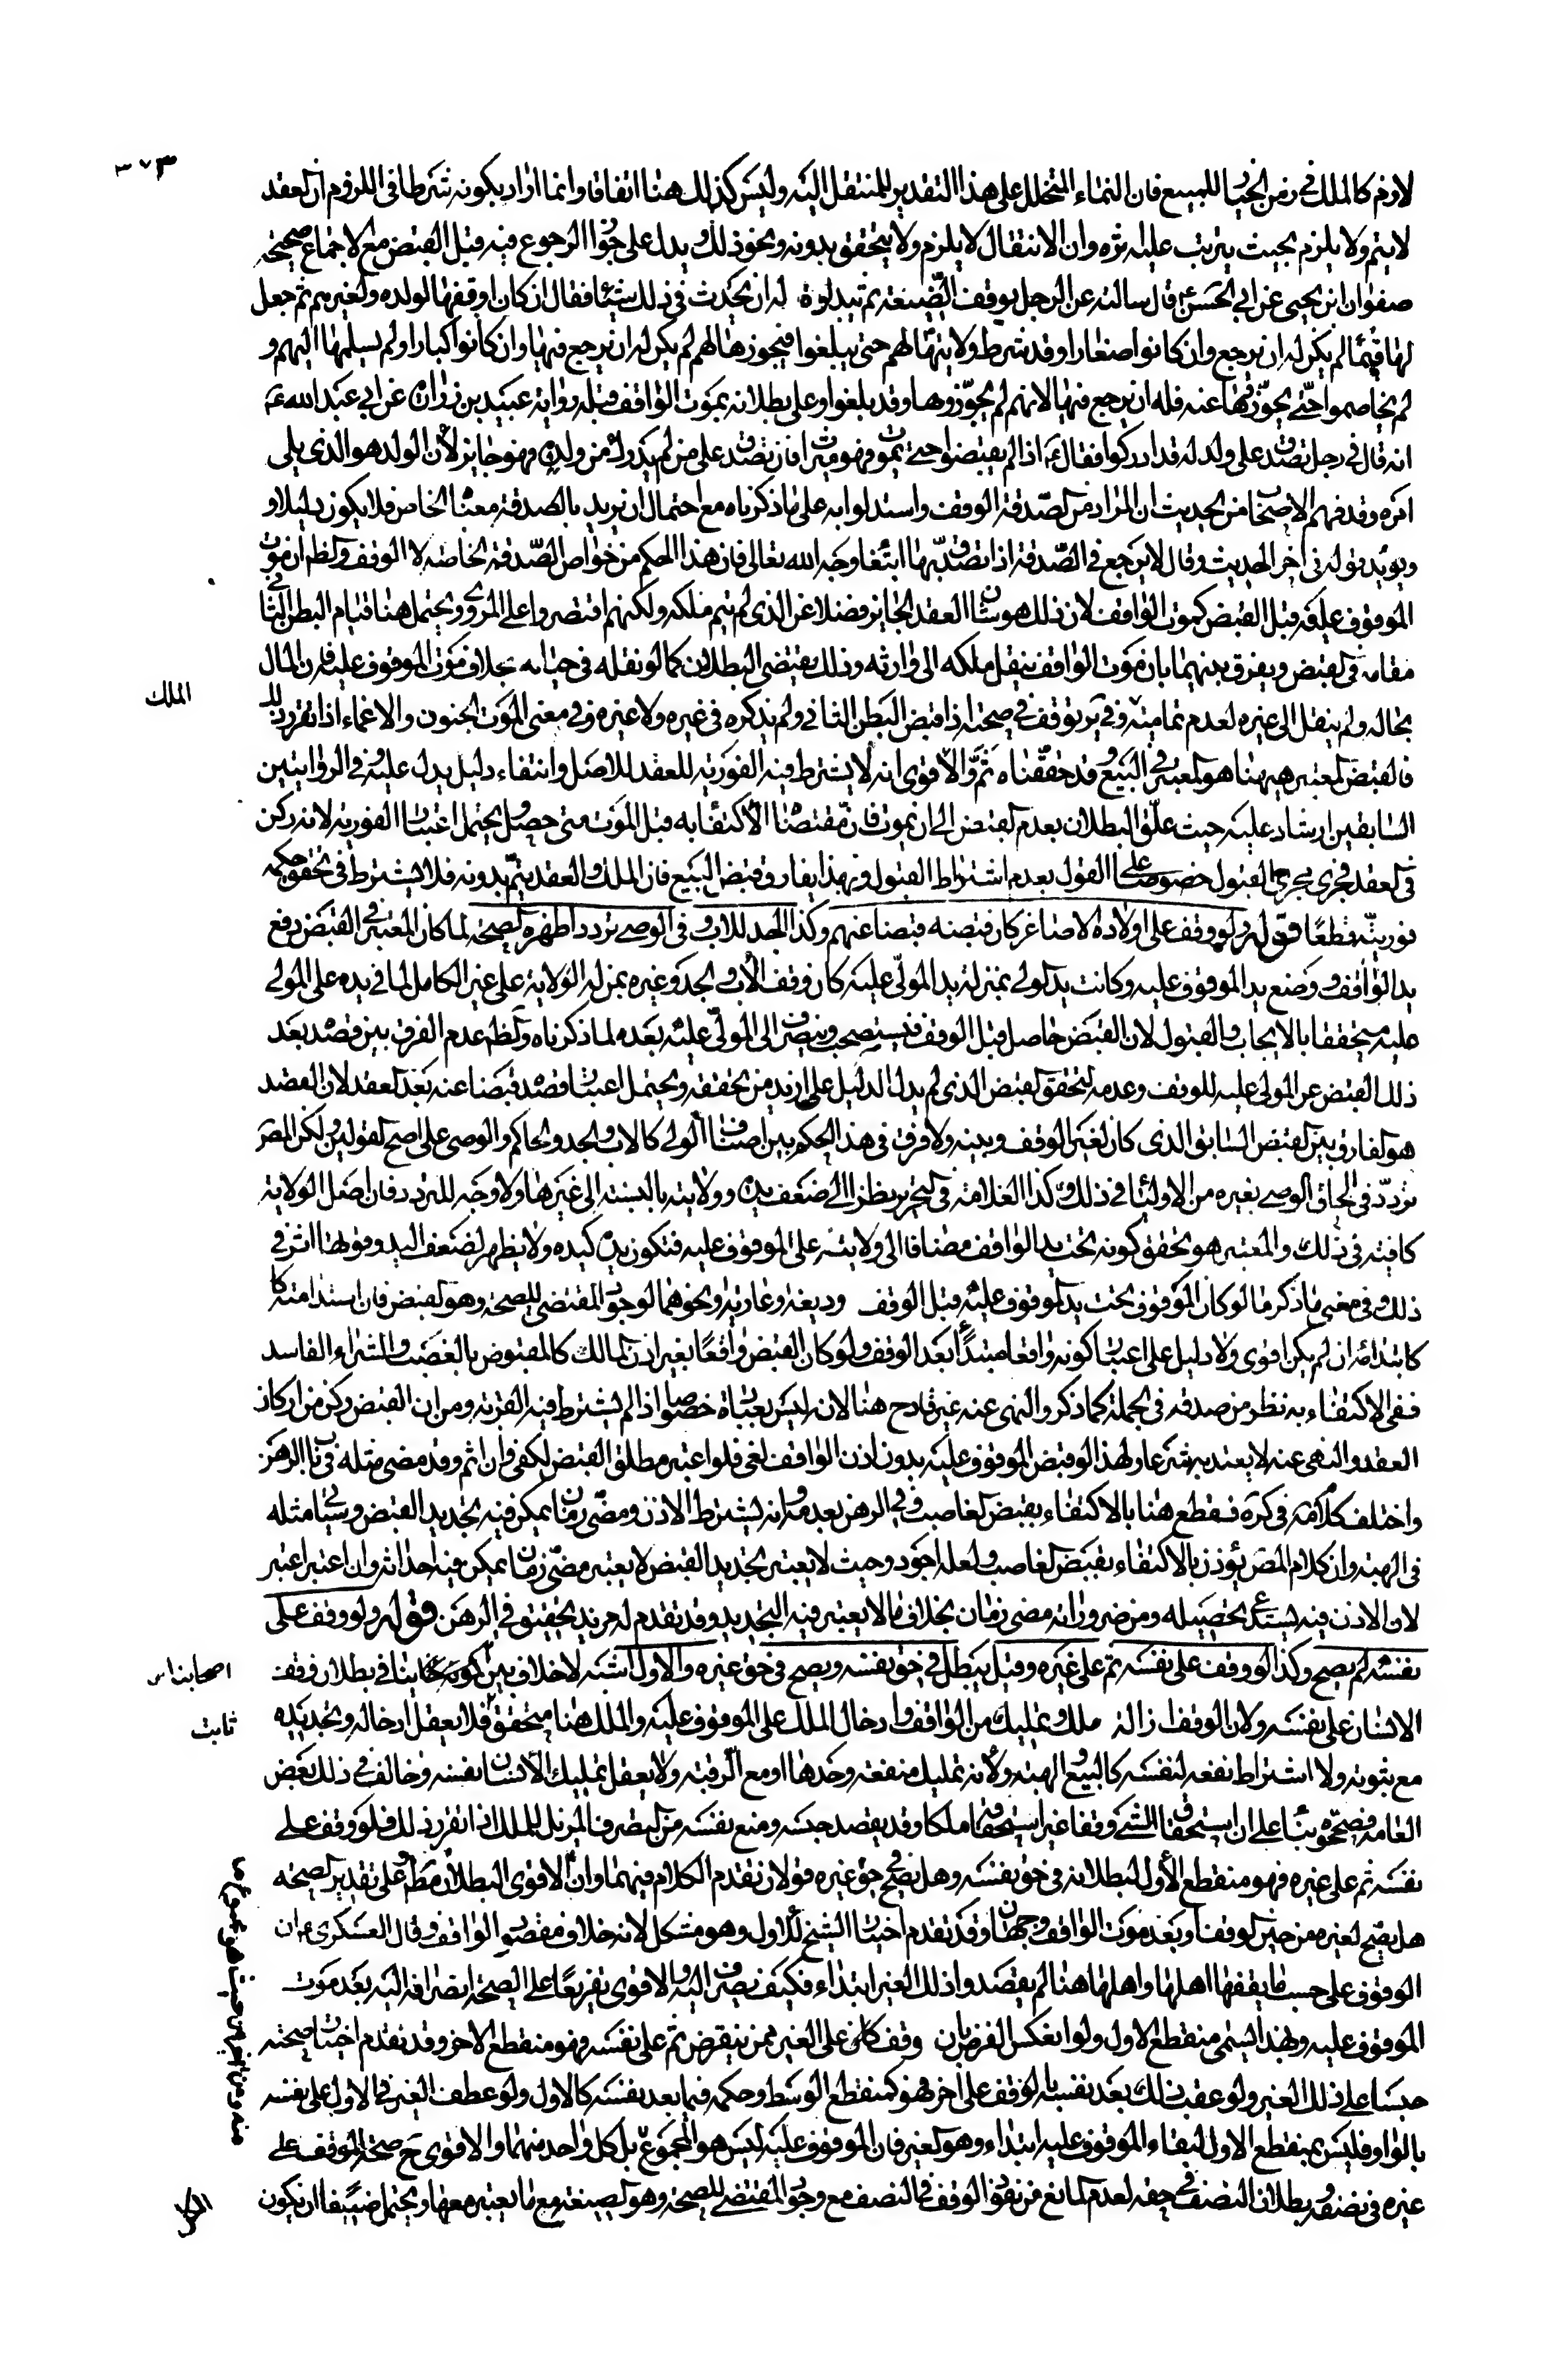 ٣٧٣
لازم كالملك في زمن الخيار للبيع فان النماء المتخلل على هذا التقدير للمنتقل اليه وليس كذلك هنا اتفاقا وانما اراد بكونه شرطا في اللزوم ان العقد
لا يتم ولا يلزم بحيث يترتب عليه اثره وان الانتقال لا يلزم ولا يتحقق بدونه ونحو ذلك ويدل على جواز الرجوع فيه قبل القبض مع الاجماع صحيحة
صفوان ابن يحيى عن ابي الحسن ع قال سالته عن الرجل يوقف الضيعة ثم يبدو له ان يحدث في ذلك شيئا فقال ان كان اوقفها لولده ولغيرهم ثم جعل
لها قيما لم يكن له ان يرجع وان كانوا صغارا وقد شرط ولايتها لهم حتى يبلغوا فيحوزها لهم لم يكن له ان يرجع فيها وان كانوا كبارا ولم يسلمها اليهم و
لم يخاصموا حتى يحوزوها عنه فله ان يرجع فيها لانهم لم يحوزوها وقد بلغوا وعلى بطلانه بموت الواقف قبله رواية عبيد بن زرارة عن ابي عبد الله ع
انه قال في رجل تصدق على ولد له قد ادركوا فقال ع اذا لم يقبضوا حتى يموت فهو ميراث فان تصدق على من لم يدرك من ولده فهو جايز لان الولد هو الذي يلي
امره وقد فهم الاصحاب من الحديث ان المراد من الصدقة الوقف واستدلوا به على ما ذكرناه مع احتمال ان يريد بالصدقة معناها الخاص فلا يكون دليلا و
ويؤيد قوله في اخر الحديث وقال لا يرجع في الصدقة اذا تصدق بها ابتغاء وجه الله تعالى فان هذا الحكم من خواص الصدقة الخاصة لا الوقف والظ ان موت
الموقوف عليه قبل القبض كموت الواقف لان ذلك هو شان العقد الجايز فضلا عن الذي لم يتم ملكه ولكنهم اقتصروا على المروي ويحتمل هنا قيام البطن الثاني
مقامه في القبض ويفرق بينهما بان موت الواقف ينقل ملكه الى وارثه وذلك يقتضي البطلان كما لو نقله في حياته بخلاف موت الموقوف عليه فان المال
الملك
بحاله ولم ينقل الى غيره لعدم تماميته وفي ير توقف في صحته اذا قبض البطن الثاني ولم يذكره في غيره ولا غيره وفي معنى الموت الجنون والاغماء اذا تقرر ذلك
فالقبض المعتبر هيهنا هو المعتبر في البيع وقد حققناه ثم والاقوى انه لا يشترط فيه الفورية للعقد للاصل وانتفاء دليل يدل عليه وفي الروايتين
السابقتين ارشاد عليه حيث علق البطلان بعدم القبض الى ان يموت فان مقتضاها الاكتفاء به قبل الموت متى حصل ويحتمل اعتبار الفورية لانه ركن
في العقد فجرى مجرى القبول خصوصا على القول بعدم اشتراط القبول وبهذا يفارق قبض البيع فان الملك والعقد يتم بدونه فلا يشترط في تحقق حكمه
فوريته قطعا قوله ولو وقف على اولاده الاصاغر كان قبضه قبضا عنهم وكذا الجد للاب وفي الوصي تردد اظهره الصحة لما كان المعتبر في القبض رفع
يد الواقف ووضع يد الموقوف عليه وكانت يد الولي بمنزلة يد المولى عليه كان وقف الاب والجد وغيره ممن له الولاية على غير الكامل لما في يده على المولى
عليه متحققا بالايجاب والقبول لان القبض حاصل قبل الوقف فيستصحب وينصرف الى المولى عليه بعده لما ذكرناه والظ عدم الفرق بين قصده بعد
ذلك القبض عن المولى عليه للوقف وعدمه لتحقق القبض الذي لم يدل الدليل على ازيد من تحققه ويحتمل اعتبار قصده قبضا عنه بعد العقد لان القصد
هو الفارق بين القبض السابق الذي كان لغير الوقف وبينه ولا فرق في هذا الحكم بين اصناف الولي كالاب والجد والحاكم والوصي على اصح القولين ولكن المص
تردد في الحاق الوصي بغيره من الاولياء في ذلك وكذا العلامة في التحرير نظرا الى ضعف يده وولايته بالنسبة الى غيرها ولا وجه للتردد فان اصل الولاية
كافية في ذلك والمعتبر هو تحقق كونه تحت يد الواقف مضافا الى ولايته على الموقوف عليه فتكون يده كيده ولا يظهر لضعف اليد وقوتها اثر في
ذلك وفي معنى ما ذكر ما لو كان الموقوف تحت يد الموقوف عليه قبل الوقف وديعة وعارية ونحوهما لوجود المقتضي للصحة وهو القبض فان استدامته
كابتدائه ان لم يكن اقوى ولا دليل على اعتبار كونه واقعا مبتدأ بعد الوقف ولو كان القبض واقعا بغير اذن المالك كالمقبوض بالغصب والشراء الفاسد
ففي الاكتفاء به نظر من صدقه في الجملة كما ذكر والنهي عنه غير قادح هنا لانه ليس بعبادة خصوصا اذا لم يشترط فيه القربة ومن ان القبض ركن من اركان
العقد والنهي عنه لا يعتد به شرعا ولهذا لو قبض الموقوف عليه بدون اذن الواقف لغي فلو اعتبر مطلق القبض لكفى وان اثم وقد مضى مثله في باب الرهن
واختلف كلامه في كره فقطع هنا بالاكتفاء بقبض الغاصب وفي الرهن بعدمه وانه يشترط الاذن ومضي زمان يمكن فيه تجديد القبض وسياتي مثله
في الهبة وان كلام المص يؤذن بالاكتفاء بقبض الغاصب ولعله اجود وحيث لا يعتبر تجديد القبض لا يعتبر مضي زمان يمكن فيه احداثه وان اعتبر اعتبر
لان الاذن فيه يستدعي تحصيله ومن ضروراته مضي زمان بخلاف ما لا يعتبر فيه التجديد وقد تقدم له مزيد تحقيق في الرهن قوله ولو وقف على
نفسه لم يصح وكذا لو وقف على نفسه ثم على غيره وقيل يبطل في حق نفسه ويصح في حق غيره والاول اشبه لا خلاف بين اصحابنا في بطلان وقف
اصحابنا س
الانسان على نفسه ولان الوقف ازالة ملك وتمليك من الواقف وادخال الملك على الموقوف عليه والملك هنا متحقق فلا يعقل ادخاله وتجديده
ثابت
مع ثبوته ولا اشتراط نفعه لنفسه كالبيع والهبة ولانه تمليك منفعة وحدها او مع الرقبة ولا يعقل تمليك الانسان نفسه وخالف في ذلك بعض
العامة فصححوه بناء على ان استحقاق الشيء وقفا غير استحقاقه ملكا وقد يقصد حبسه ومنع نفسه من التصرف المزيل للملك اذا تقرر ذلك فلو وقف على
نفسه ثم على غيره فهو منقطع الاول لبطلانه في حق نفسه وهل يصح في حق غيره قولان تقدم الكلام فيهما وان الاقوى البطلان مط وعلى تقدير الصحة
هل يصح لغيره من حين الوقف او بعد موت الواقف وجهان وقد تقدم اختيار الشيخ للاول وهو مشكل لانه خلاف مقصود الواقف وقال العسكري ع ان
الوقوف على حسب ما يقفها اهلها واهلها هنا لم يقصدوا ذلك الغير ابتداء فكيف يصرف اليه والاقوى تفريعا على الصحة انصرافه اليه بعد موت
الموقوف عليه وبهذا يسمى منقطع الاول ولو انعكس الفرض بان وقف كان على الغير ممن ينقرض ثم على نفسه فهو منقطع الاخر وقد تقدم اختيار صحته
حبسا على ذلك الغير ولو عقب ذلك بعد نفسه بالوقف على اخر فهو كمنقطع الوسط وحكمه فيما بعد نفسه كالاول ولو عطف الغير في الاول على نفسه
بالواو فليس بمنقطع الاول لبقاء الموقوف عليه ابتداء وهو الغير فان الموقوف عليه ليس هو المجموع بل كل واحد منهما والاقوى ح صحة الوقف على
غيره في نصفه وبطلان النصف في حقه لعدم المانع من نفوذ الوقف في النصف مع وجود المقتضي للصحة وهو الصيغة مع ما يعتبر معها ويحتمل ضعيفا ان يكون
الكل